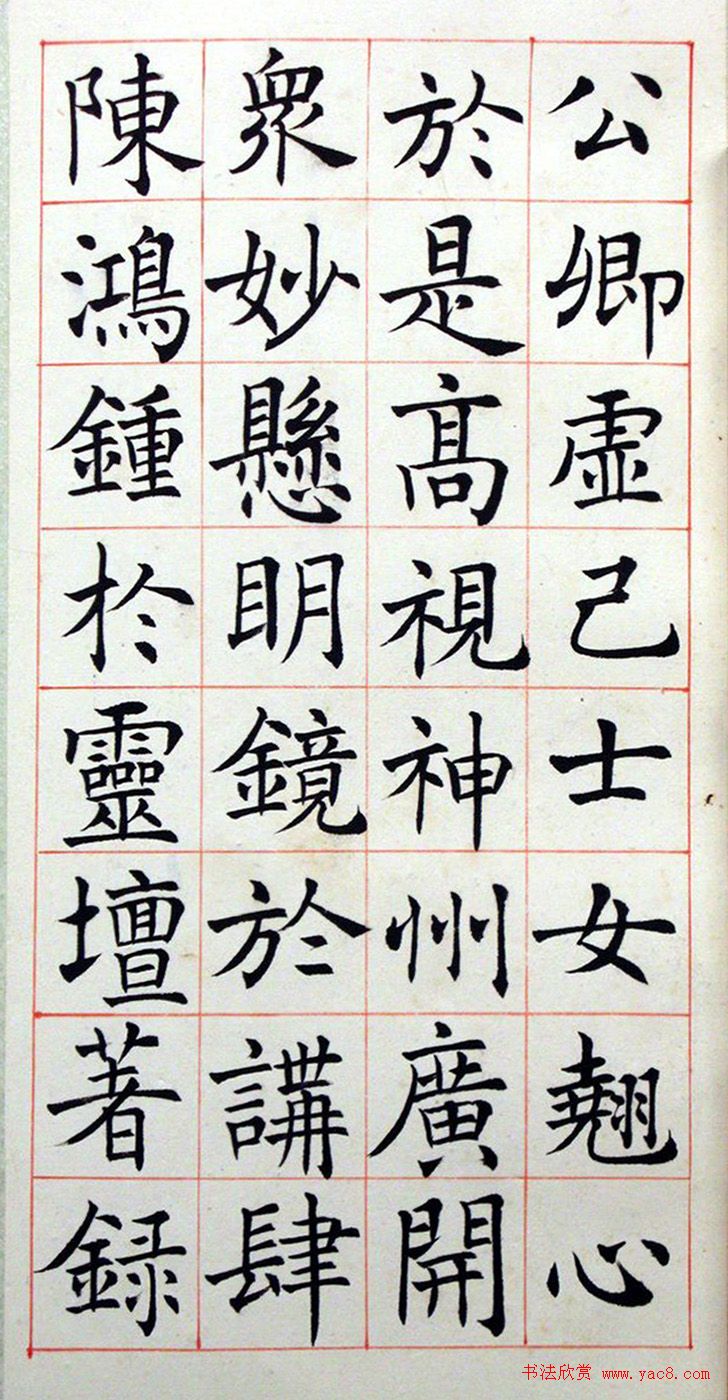 公卿虛己士女翹心
於是髙視神州廣開
衆妙懸明鏡於講肆
陳鴻鍾於靈壇著録
书法欣赏 www.yac8.com